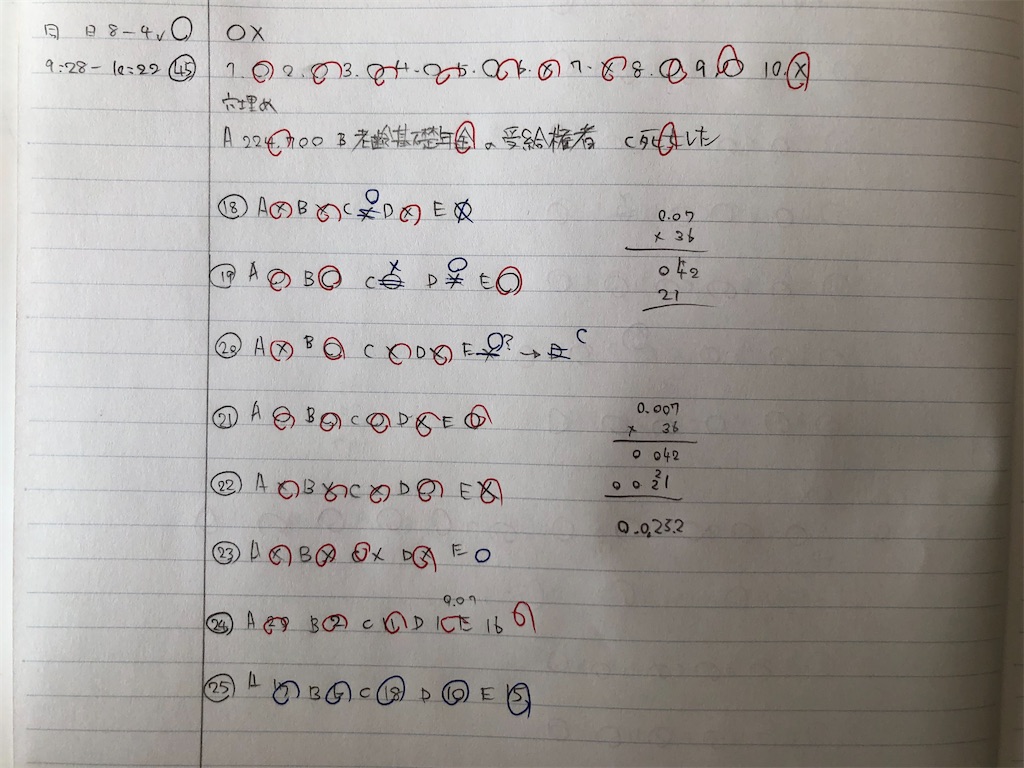 月 日 8-4 ○ ○×
9:28-10:22 45 1. ○ 2. ○ 3. ○ 4. ○ 5. ○ 6. × 7. × 8. ○ 9 ○ 10. ×
穴埋め
A 224,700 B 老齢基礎年金の受給権者 C 死亡した
⑱ A × B × C × ○ D × E ×
⑲ A ○ B ○ C ○ × D × ○ E ○
⑳ A × B ○ C × D × E × ○? → E C
㉑ A ○ B ○ C ○ D × E ○
㉒ A × B × C × D ○ E ×
㉓ A × B × × D × E ○
㉔ A B 2 C 1 D E 16
㉕ A B C 18 D 10 E 5
0.07
× 36
042
21
0.007
× 36
0 042
0 0 21
0.0232
0.07